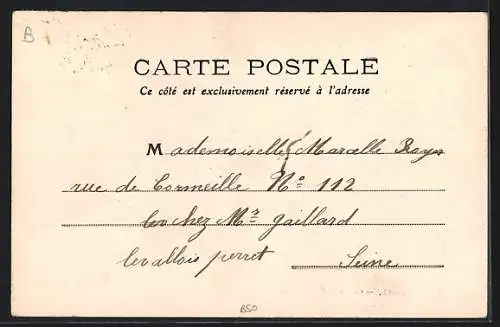 B
CARTE POSTALE
Ce côté est exclusivement réservé à l'adresse
Mademoiselle Marcelle
rue de Cormeille Nº 112
chez Mr Gaillard
levallois perret Seine
BSO